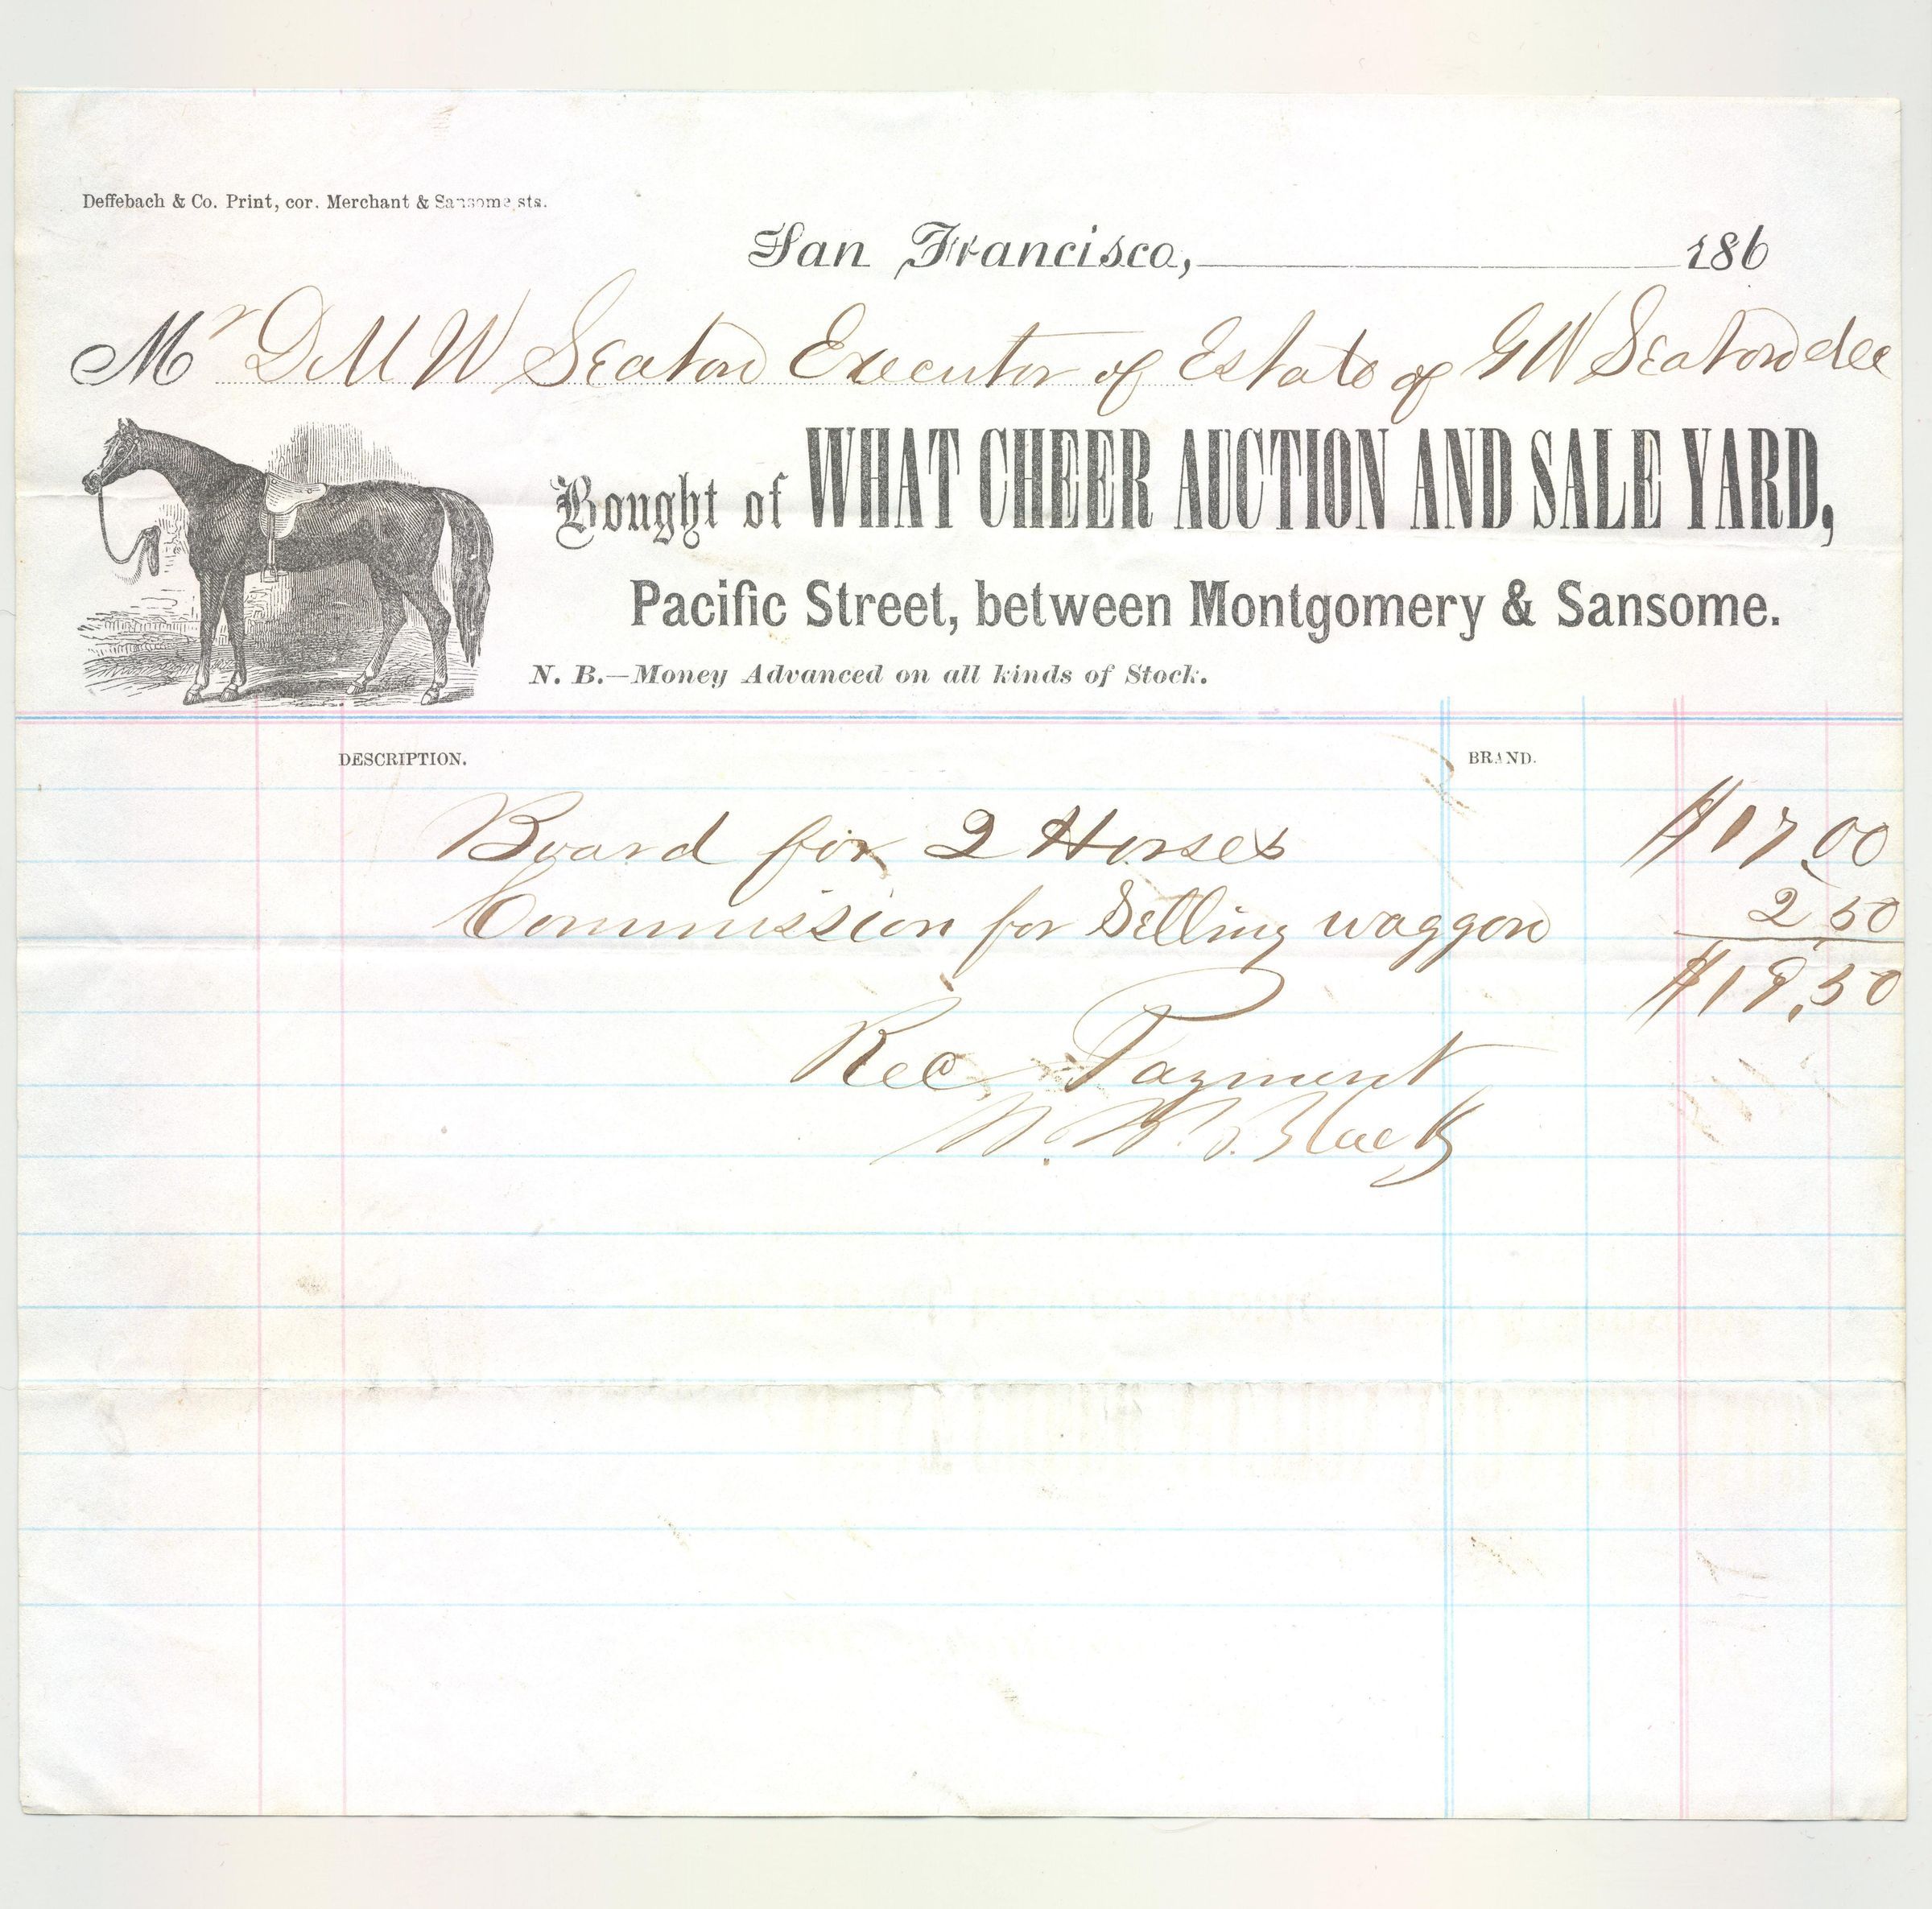 Deffebach & Co. Print, cor. Merchant & Sansome sts.
San Francisco, 186
Mr D M W Seaton Executor of Estate of G W Seaton dec
Bought of WHAT CHEER AUCTION AND SALE YARD,
Pacific Street, between Montgomery & Sansome.
N. B.—Money Advanced on all kinds of Stock.
DESCRIPTION. BRAND.
Board for 2 Horses $17,00
Commission for Selling waggon 2,50
$19,50
Rec Payment
Black